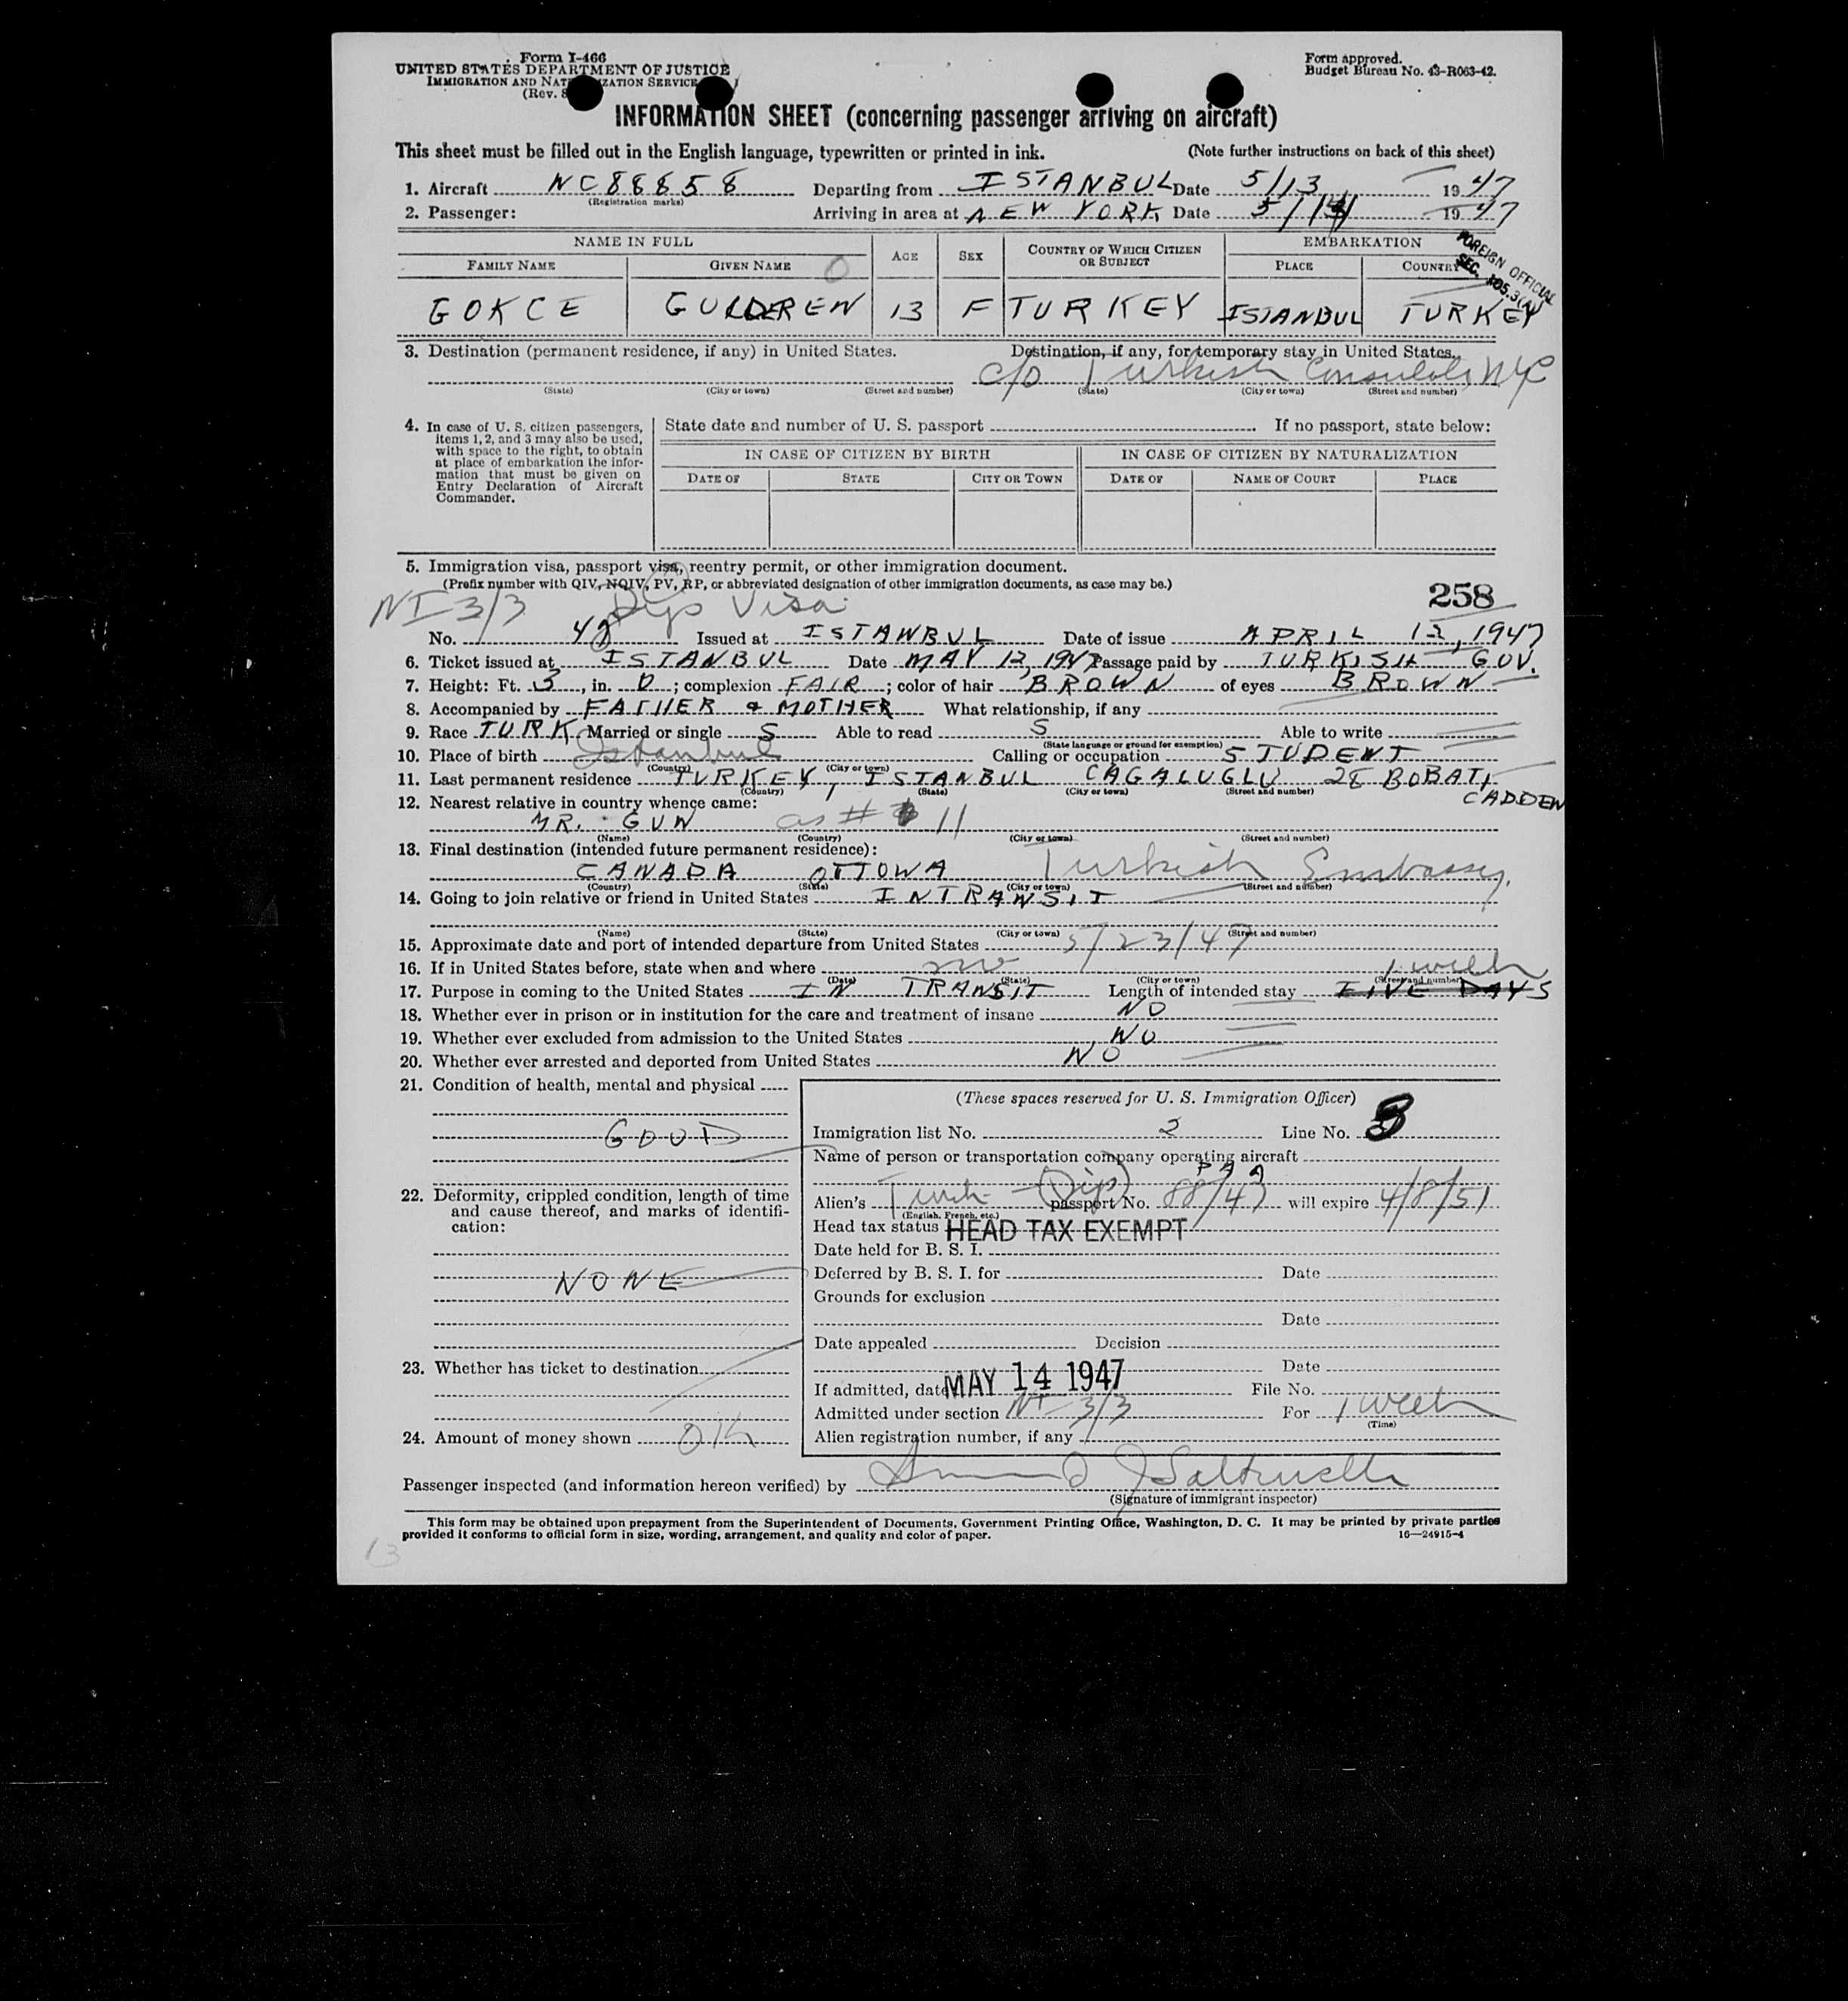 Form I-466
UNITED STATES DEPARTMENT OF JUSTICE
IMMIGRATION AND NATURALIZATION SERVICE
(Rev. 8
Form approved.
Budget Bureau No. 43-R063-42.
INFORMATION SHEET (concerning passenger arriving on aircraft)
This sheet must be filled out in the English language, typewritten or printed in ink. (Note further instructions on back of this sheet)
1. Aircraft NC88858 Departing from ISTANBUL Date 5/13, 1947
(Registration marks)
2. Passenger: Arriving in area at NEW YORK Date 5/14 1947
FOREIGN OFFICIAL
SEC. 105.3(A)
NAME IN FULL AGE SEX COUNTRY OF WHICH CITIZEN OR SUBJECT EMBARKATION
FAMILY NAME GIVEN NAME PLACE COUNTRY
GOKCE GULDEREN 13 F TURKEY ISTANBUL TURKEY
3. Destination (permanent residence, if any) in United States. Destination, if any, for temporary stay in United States.
c/o Turkish Consulate NYC
(State) (City or town) (Street and number) (State) (City or town) (Street and number)
4. In case of U. S. citizen passengers, items 1, 2, and 3 may also be used, with space to the right, to obtain at place of embarkation the information that must be given on Entry Declaration of Aircraft Commander.
State date and number of U. S. passport If no passport, state below:
IN CASE OF CITIZEN BY BIRTH IN CASE OF CITIZEN BY NATURALIZATION
DATE OF STATE CITY OR TOWN DATE OF NAME OF COURT PLACE
5. Immigration visa, passport visa, reentry permit, or other immigration document.
(Prefix number with QIV, NQIV, PV, RP, or abbreviated designation of other immigration documents, as case may be.)
258
NI 3/3 Dip Visa
No. Issued at ISTANBUL Date of issue APRIL 12, 1947
6. Ticket issued at ISTANBUL Date MAY 12, 1947 Passage paid by TURKISH GOV.
7. Height: Ft. 3, in. 0; complexion FAIR; color of hair BROWN of eyes BROWN
8. Accompanied by FATHER & MOTHER What relationship, if any
9. Race TURK Married or single S Able to read S Able to write
(State language or ground for exemption)
10. Place of birth Istanbul Calling or occupation STUDENT
(Country) (City or town)
11. Last permanent residence TURKEY, ISTANBUL CAGALUGLU 28 BOBATI CADDEN
(Country) (State) (City or town) (Street and number)
12. Nearest relative in country whence came:
MR. GUN as # 11
(Name) (Country) (City or town) (Street and number)
13. Final destination (intended future permanent residence):
CANADA OTTOWA Turkish Embassy.
(Country) (State) (City or town) (Street and number)
14. Going to join relative or friend in United States INTRANSIT
(Name) (State) (City or town) (Street and number)
15. Approximate date and port of intended departure from United States 5/23/47
16. If in United States before, state when and where no
(Date) (State) (City or town) (Street and number)
1 week
17. Purpose in coming to the United States IN TRANSIT Length of intended stay FIVE DAYS
18. Whether ever in prison or in institution for the care and treatment of insane NO
19. Whether ever excluded from admission to the United States NO
20. Whether ever arrested and deported from United States NO
21. Condition of health, mental and physical
GOOD
22. Deformity, crippled condition, length of time and cause thereof, and marks of identification:
NONE
23. Whether has ticket to destination
24. Amount of money shown OK
(These spaces reserved for U. S. Immigration Officer)
Immigration list No. 2 Line No. 3
Name of person or transportation company operating aircraft
PAA
Alien's Turk (Dip) passport No. 88/47 will expire 4/8/51
(English, French, etc.)
Head tax status HEAD TAX EXEMPT
Date held for B. S. I.
Deferred by B. S. I. for Date
Grounds for exclusion
Date
Date appealed Decision
Date
If admitted, date MAY 14 1947 File No.
Admitted under section NI 3/3 For 1 week
(Time)
Alien registration number, if any
Passenger inspected (and information hereon verified) by
(Signature of immigrant inspector)
This form may be obtained upon prepayment from the Superintendent of Documents, Government Printing Office, Washington, D. C. It may be printed by private parties
provided it conforms to official form in size, wording, arrangement, and quality and color of paper. 16—24915-4
13